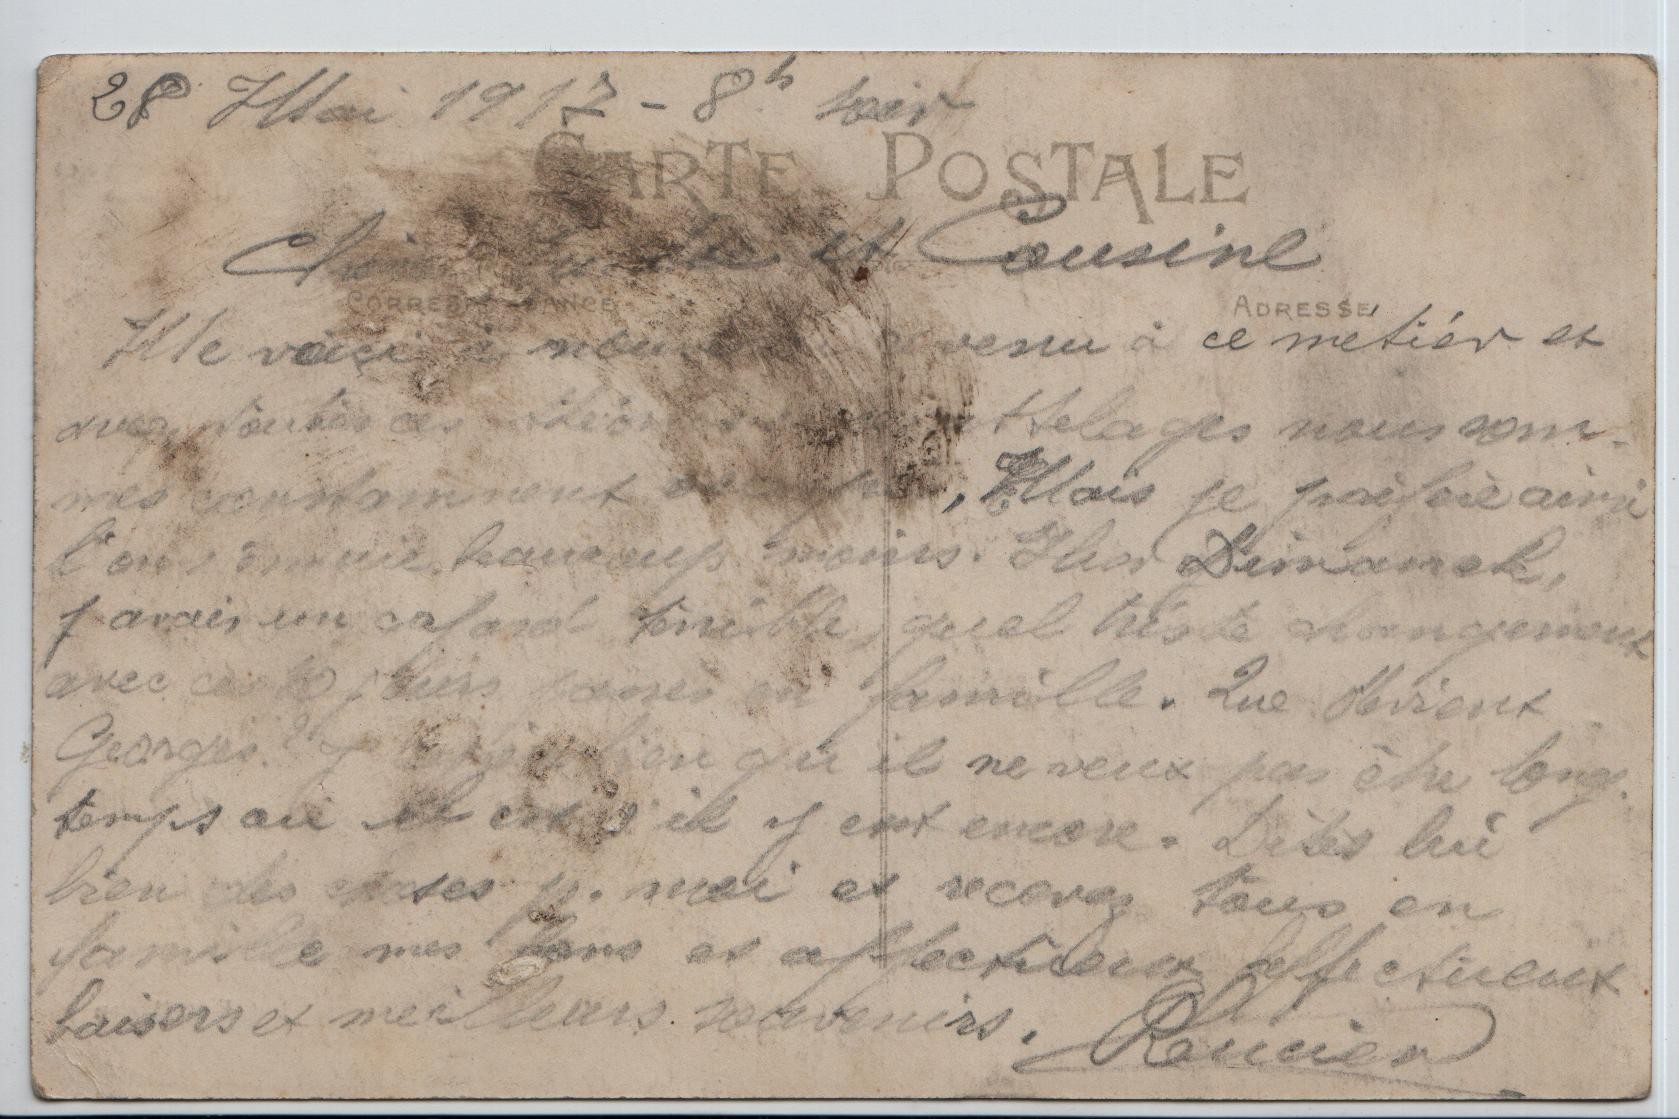 28 Mai 1917 - 8h soir
CARTE POSTALE
et Cousine
CORRESPONDANCE
ADRESSE
Me voici à venu à ce métier et
avec toutes ces attelages nous som-
mes constamment Mais je préfère ainsi
beaucoup moins. Hier Dimanche,
j'avais un cafard terrible, quel triste changement
avec ces 10 jours passés en famille. Que devient
Georges? J bien qu'il ne veux pas être long-
temps où il est s'il y est encore. Dites lui
bien des choses p. moi et recevez tous en
famille mes bons et affectueux affectueux
baisers et meilleurs souvenirs.